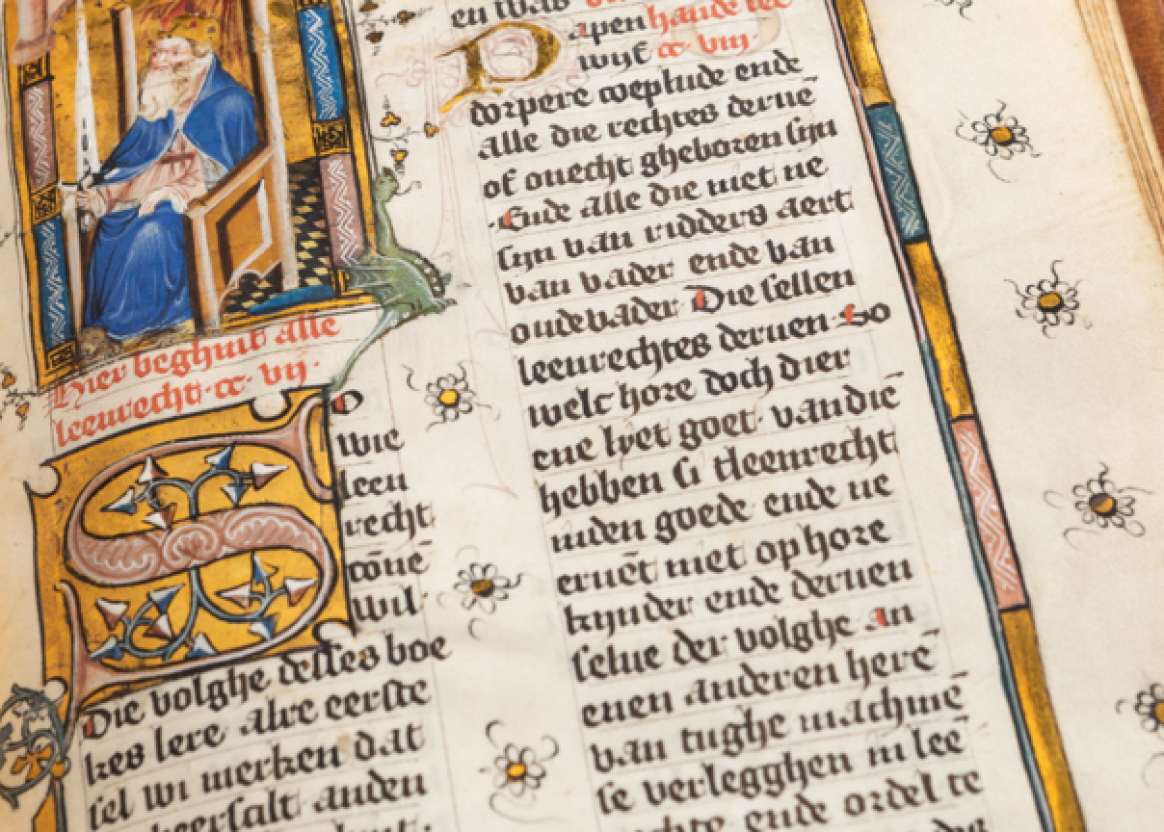 Hier beghint alle
leenrecht· cc· vij·
So
wie
leen
recht
cōnē
wil·
Die volghe desses boe
kes lere alre eerste
sel wi merken dat
heersalt anden
en was
Papen hande
wijf cc· viij·
dorpere coeplude ende
alle die rechtes deruē
of onecht gheboren sijn
·Ende alle die niet ne
sijn van ridders aert
van vader ende van
oudevader Die sellen
leenrechtes deruen So
welc hore doch dier
ene lyet goet· van diē
hebben si tleenrecht
inden goede ende ne
eruēt niet op hore
kynder ende deruen
selue der volghe An
enen anderen herē
van tughe machmē
se verlegghen in lee
ende ordel te